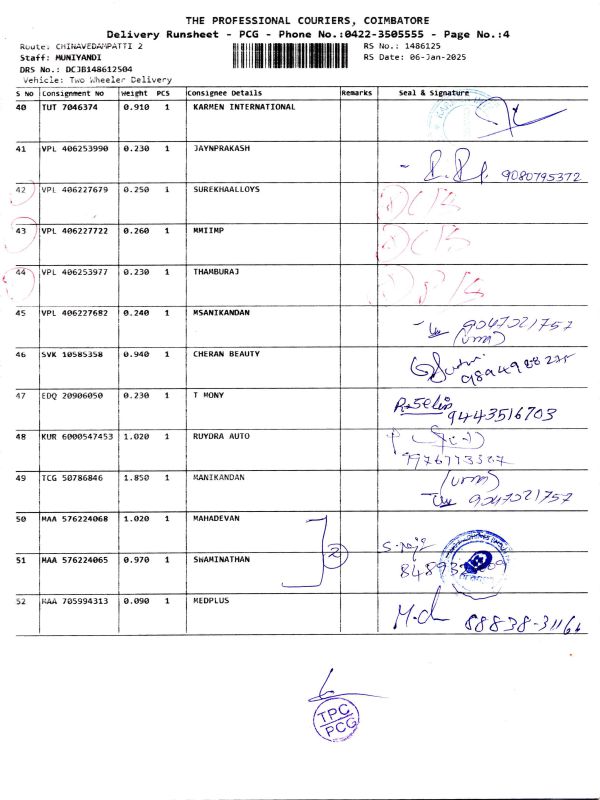 THE PROFESSIONAL COURIERS, COIMBATORE
Delivery Runsheet - PCG - Phone No.:0422-3505555 - Page No.:4
Route: CHINAVEDAMPATTI 2 RS No.: 1486125
Staff: MUNIYANDI RS Date: 06-Jan-2025
DRS No.: DCJB148612504
Vehicle: Two Wheeler Delivery
S No Consignment No Weight PCS Consignee Details Remarks Seal & Signature
40 TUT 7046374 0.910 1 KARMEN INTERNATIONAL
41 VPL 406253990 0.230 1 JAYNPRAKASH
9080795372
42 VPL 406227679 0.250 1 SUREKHAALLOYS
43 VPL 406227722 0.260 1 MMIIMP
44 VPL 406253977 0.230 1 THAMBURAJ
45 VPL 406227682 0.240 1 MSANIKANDAN
9047021757
46 SVK 10585358 0.940 1 CHERAN BEAUTY
47 EDQ 20906050 0.230 1 T MONY
9443516703
48 KUR 6000547453 1.020 1 RUYDRA AUTO
49 TCG 50786846 1.850 1 MANIKANDAN
9047021757
50 MAA 576224068 1.020 1 MAHADEVAN
2
51 MAA 576224065 0.970 1 SWAMINATHAN
52 MAA 705994313 0.090 1 MEDPLUS
TPC
PCG